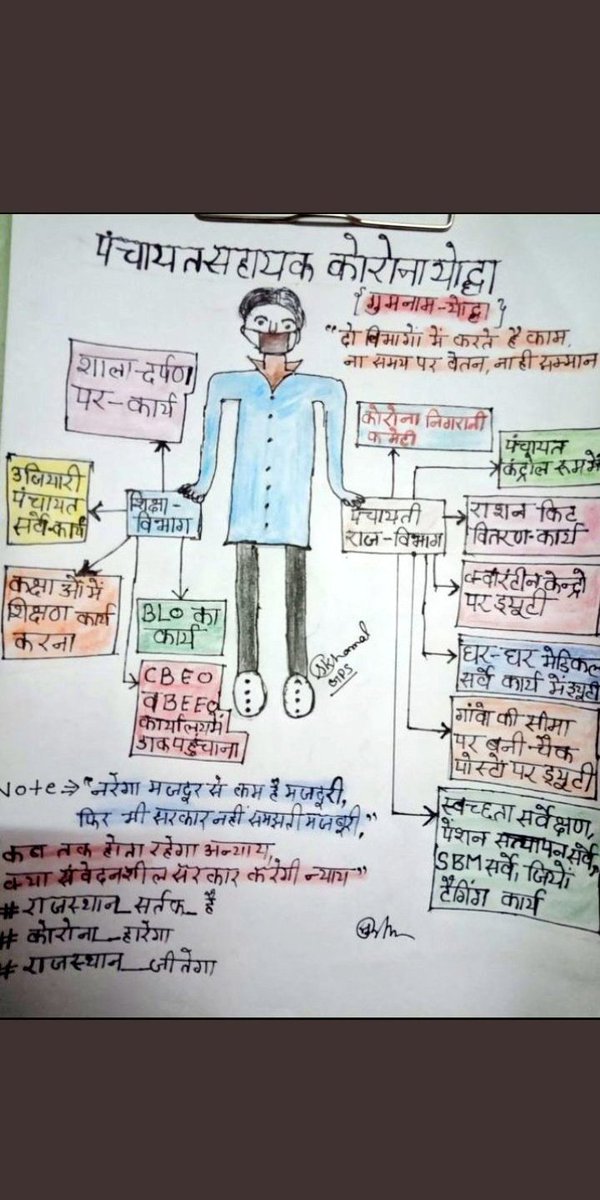 पंचायत सहायक कोरोना योद्धा
{गुमनाम-योद्धा}
"दो विभागों में करते है काम,
ना समय पर वेतन, ना ही सम्मान
शाला-दर्पण
पर-कार्य
उजियारी
पंचायत
सर्वे-कार्य
शिक्षा-
विभाग
कक्षाओं में
शिक्षण कार्य
करना
BLO का
कार्य
CBEO
व BEEO
कार्यालय में
डाक पहुंचाना
कोरोना निगरानी
कमेटी
पंचायत
कंट्रोल रूम में
पंचायती
राज-विभाग
राशन किट
वितरण-कार्य
क्वारंटीन केन्द्रो
पर ड्यूटी
घर-घर मेडिकल
सर्वे कार्य में ड्यूटी
गांवो की सीमा
पर बनी-चैक
पोस्टो पर ड्यूटी
स्वच्छता सर्वेक्षण,
पेंशन सत्यापन सर्वे,
SBM सर्वे, जियो
टैगिंग कार्य
Note⇒"नरेगा मजदूर से कम है मजदूरी,
फिर भी सरकार नहीं समझती मजबूरी,"
कब तक होता रहेगा अन्याय,
क्या संवेदनशील सरकार करेगी न्याय"
#राजस्थान_सर्तक_है
#कोरोना_हारेगा
#राजस्थान_जीतेगा